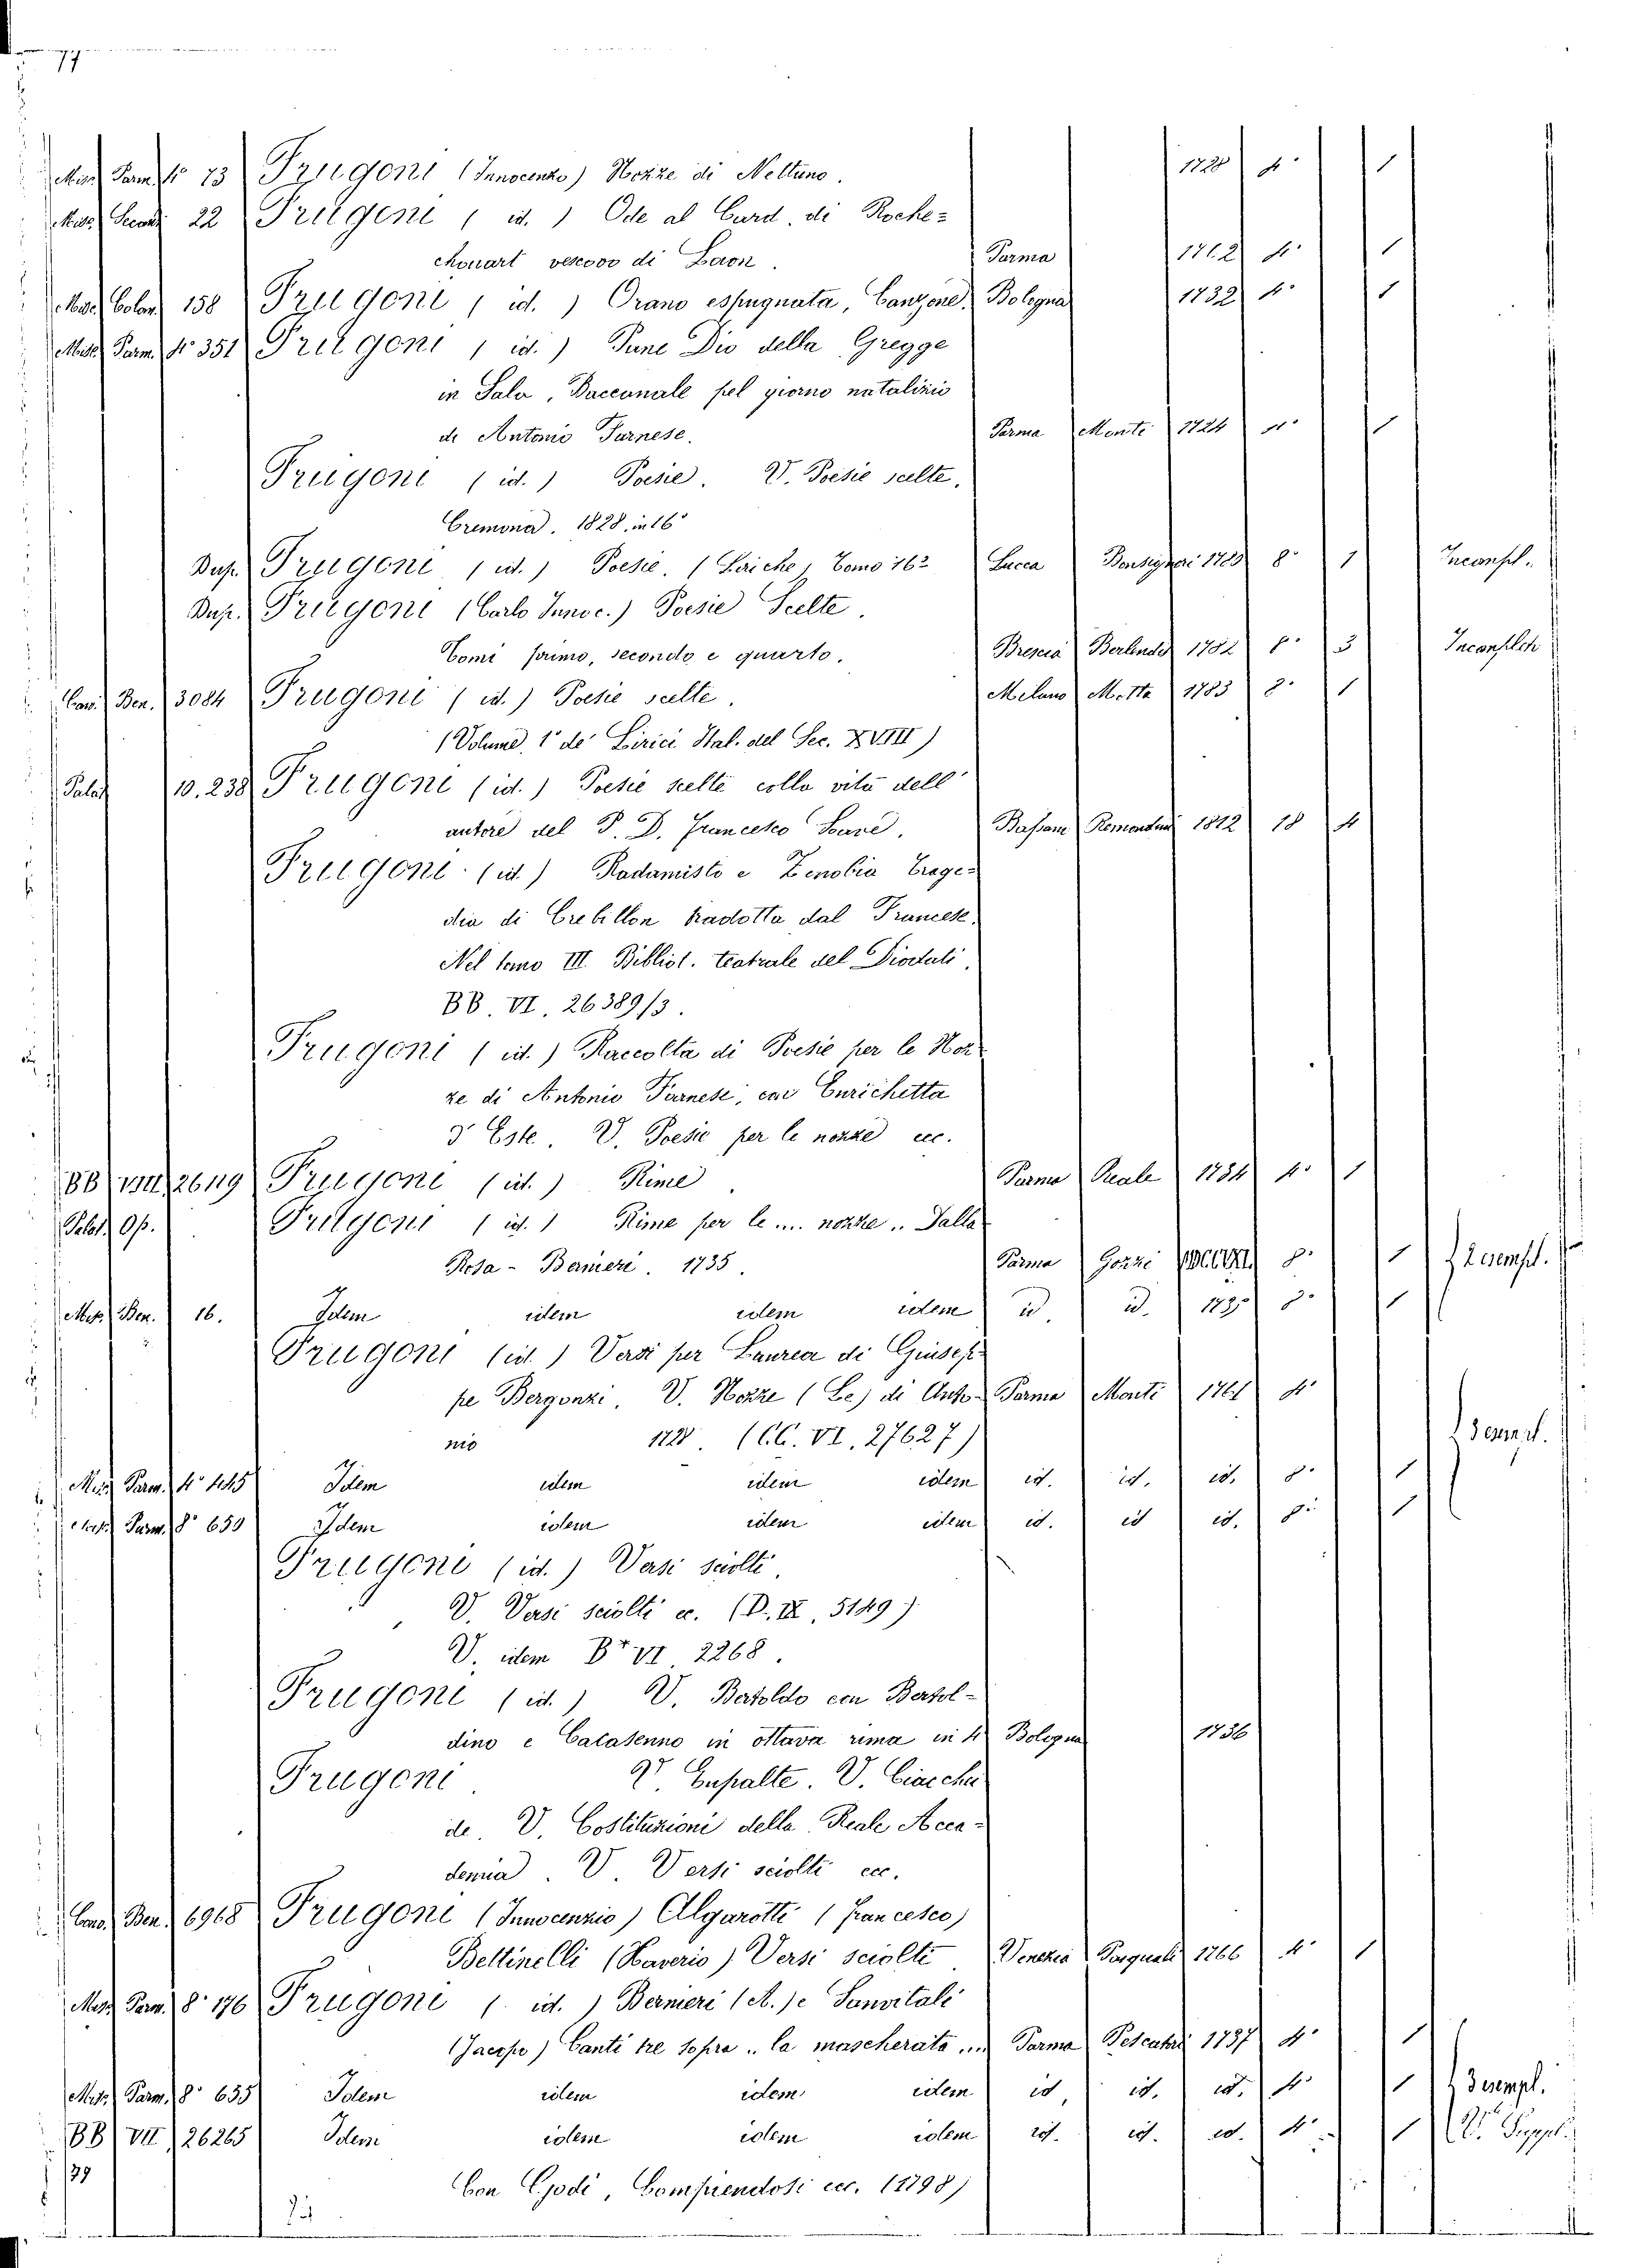 77
Misc. Parm. 4° 73 Frugoni (Innocenzo) Nozze di Nettuno. 1728 4° 1
Misc. 22 Frugoni (id.) Ode al Card. di Roche=
chouart vescovo di Laon. Parma 1762 4° 1
Misc. Colon. 158 Frugoni (id.) Orano espugnata, Canzone. Bologna 1732 4° 1
Misc. Parm. 4° 351 Frugoni (id.) Pane Dio della Gregge
in Sala, Baccanale pel giorno natalizio
di Antonio Farnese. Parma Monti 1724 4° 1
Frugoni (id.) Poesie. V. Poesie scelte.
Cremona. 1828. in 16°
Dup. Frugoni (id.) Poesie. (Liriche, Tomo 16° Lucca Bonsignori 1780 8° 1 Incompl.
Dup. Frugoni (Carlo Innoc.) Poesie Scelte.
Tomi primo, secondo e quarto. Brescia Berlendis 1782 8° 3
Ben. 3084 Frugoni (id.) Poesie scelte. Milano Motta 1783 8° 1
(Volume 1° de' Lirici Ital. del Sec. XVIII)
Palat. 10.238 Frugoni (id.) Poesie scelte colla vita dell'
autore del P. D. Francesco Soave. Bassano Remondini 1812 18 4
Frugoni (id.) Radamisto e Zenobia Trage=
dia di Crebillon tradotta dal Francese.
Nel tomo III Bibliot. teatrale del Diodati.
BB. VI. 26389/3.
Frugoni (id.) Raccolta di Poesie per le Noz
ze di Antonio Farnese, con Enrichetta
d'Este. V. Poesie per le nozze ecc.
BB VIII 26119 Frugoni (id.) Rime Parma Reale 1734 4° 1
Palat. Op. Frugoni (id.) Rime per le ... nozze .. Dalla
Rosa - Bernieri. 1735. Parma Gozzi 8° 1 2 esempl.
Misc. Ben. 16. Idem idem idem idem id. id. 1735 8° 1
Frugoni (id.) Versi per Laurea di Giusep=
pe Bergonzi. V. Nozze (Le) di Anto- Parma Monti 1761 4°
nio 1728. (CC. VI. 27627) 3 esempl.
Misc. Parm. 4° 445 Idem idem idem idem id. id. id. 8° 1
Misc. Parm. 8° 650 Idem idem idem idem id. id id. 8° 1
Frugoni (id.) Versi sciolti.
V. Versi sciolti ec. (D. IX, 5149)
V. idem B* VI 2268.
Frugoni (id.) V. Bertoldo con Bertol-
dino e Cacasenno in ottava rima in 4 Bologna 1736
Frugoni V. Enfalte. V.
de. V. Costituzioni della Reale Acca-
demia. V. Versi sciolti ecc.
Ben. 6968 Frugoni (Innocenzio) Algarotti (Francesco)
Bettinelli (Xaverio) Versi sciolti Venezia Pasquali 1766 4° 1
Misc. Parm. 8° 176 Frugoni (id.) Bernieri (A.) e Sanvitali
(Jacopo) Canti tre sopra .. la mascherata ... Parma 1737 4° 1
Misc. Parm. 8° 635 Idem idem idem idem id. id. id. 4° 1 3 esempl.
BB VII 26265 Idem idem idem idem id. id. id. 4° 1 V. Suppl.
/39 Con Godi, ecc. (1798)